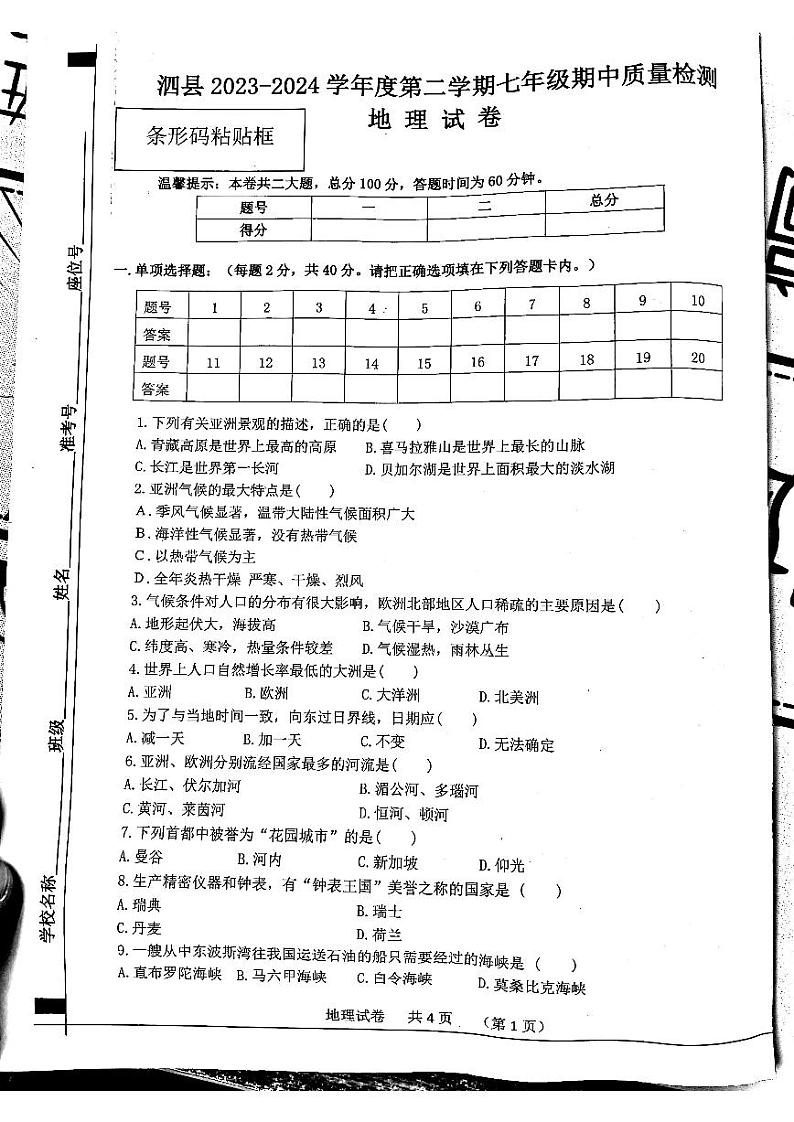 泗县 2023-2024 学年度第二学期七年级期中质量检测
地 理 试 卷
条形码粘贴框
温馨提示：本卷共二大题，总分 100 分，答题时间为 60 分钟。
题号 一 二 总分
得分
一.单项选择题：（每题 2 分，共 40 分。请把正确选项填在下列答题卡内。）
题号 1 2 3 4 5 6 7 8 9 10
答案
题号 11 12 13 14 15 16 17 18 19 20
答案
1. 下列有关亚洲景观的描述，正确的是( )
A. 青藏高原是世界上最高的高原 B. 喜马拉雅山是世界上最长的山脉
C. 长江是世界第一长河 D. 贝加尔湖是世界上面积最大的淡水湖
2. 亚洲气候的最大特点是( )
A. 季风气候显著，温带大陆性气候面积广大
B. 海洋性气候显著，没有热带气候
C. 以热带气候为主
D. 全年炎热干燥 严寒、干燥、烈风
3. 气候条件对人口的分布有很大影响，欧洲北部地区人口稀疏的主要原因是( )
A. 地形起伏大，海拔高 B. 气候干旱，沙漠广布
C. 纬度高、寒冷，热量条件较差 D. 气候湿热，雨林丛生
4. 世界上人口自然增长率最低的大洲是( )
A. 亚洲 B. 欧洲 C. 大洋洲 D. 北美洲
5. 为了与当地时间一致，向东过日界线，日期应( )
A. 减一天 B. 加一天 C. 不变 D. 无法确定
6. 亚洲、欧洲分别流经国家最多的河流是( )
A. 长江、伏尔加河 B. 湄公河、多瑙河
C. 黄河、莱茵河 D. 恒河、顿河
7. 下列首都中被誉为“花园城市”的是( )
A. 曼谷 B. 河内 C. 新加坡 D. 仰光
8. 生产精密仪器和钟表，有“钟表王国”美誉之称的国家是 ( )
A. 瑞典 B. 瑞士
C. 丹麦 D. 荷兰
9. 一艘从中东波斯湾往我国运送石油的船只需要经过的海峡是 ( )
A. 直布罗陀海峡 B. 马六甲海峡 C. 白令海峡 D. 莫桑比克海峡
地理试卷 共 4 页 （第 1 页）
学校名称 班级 姓名 准考号 座位号